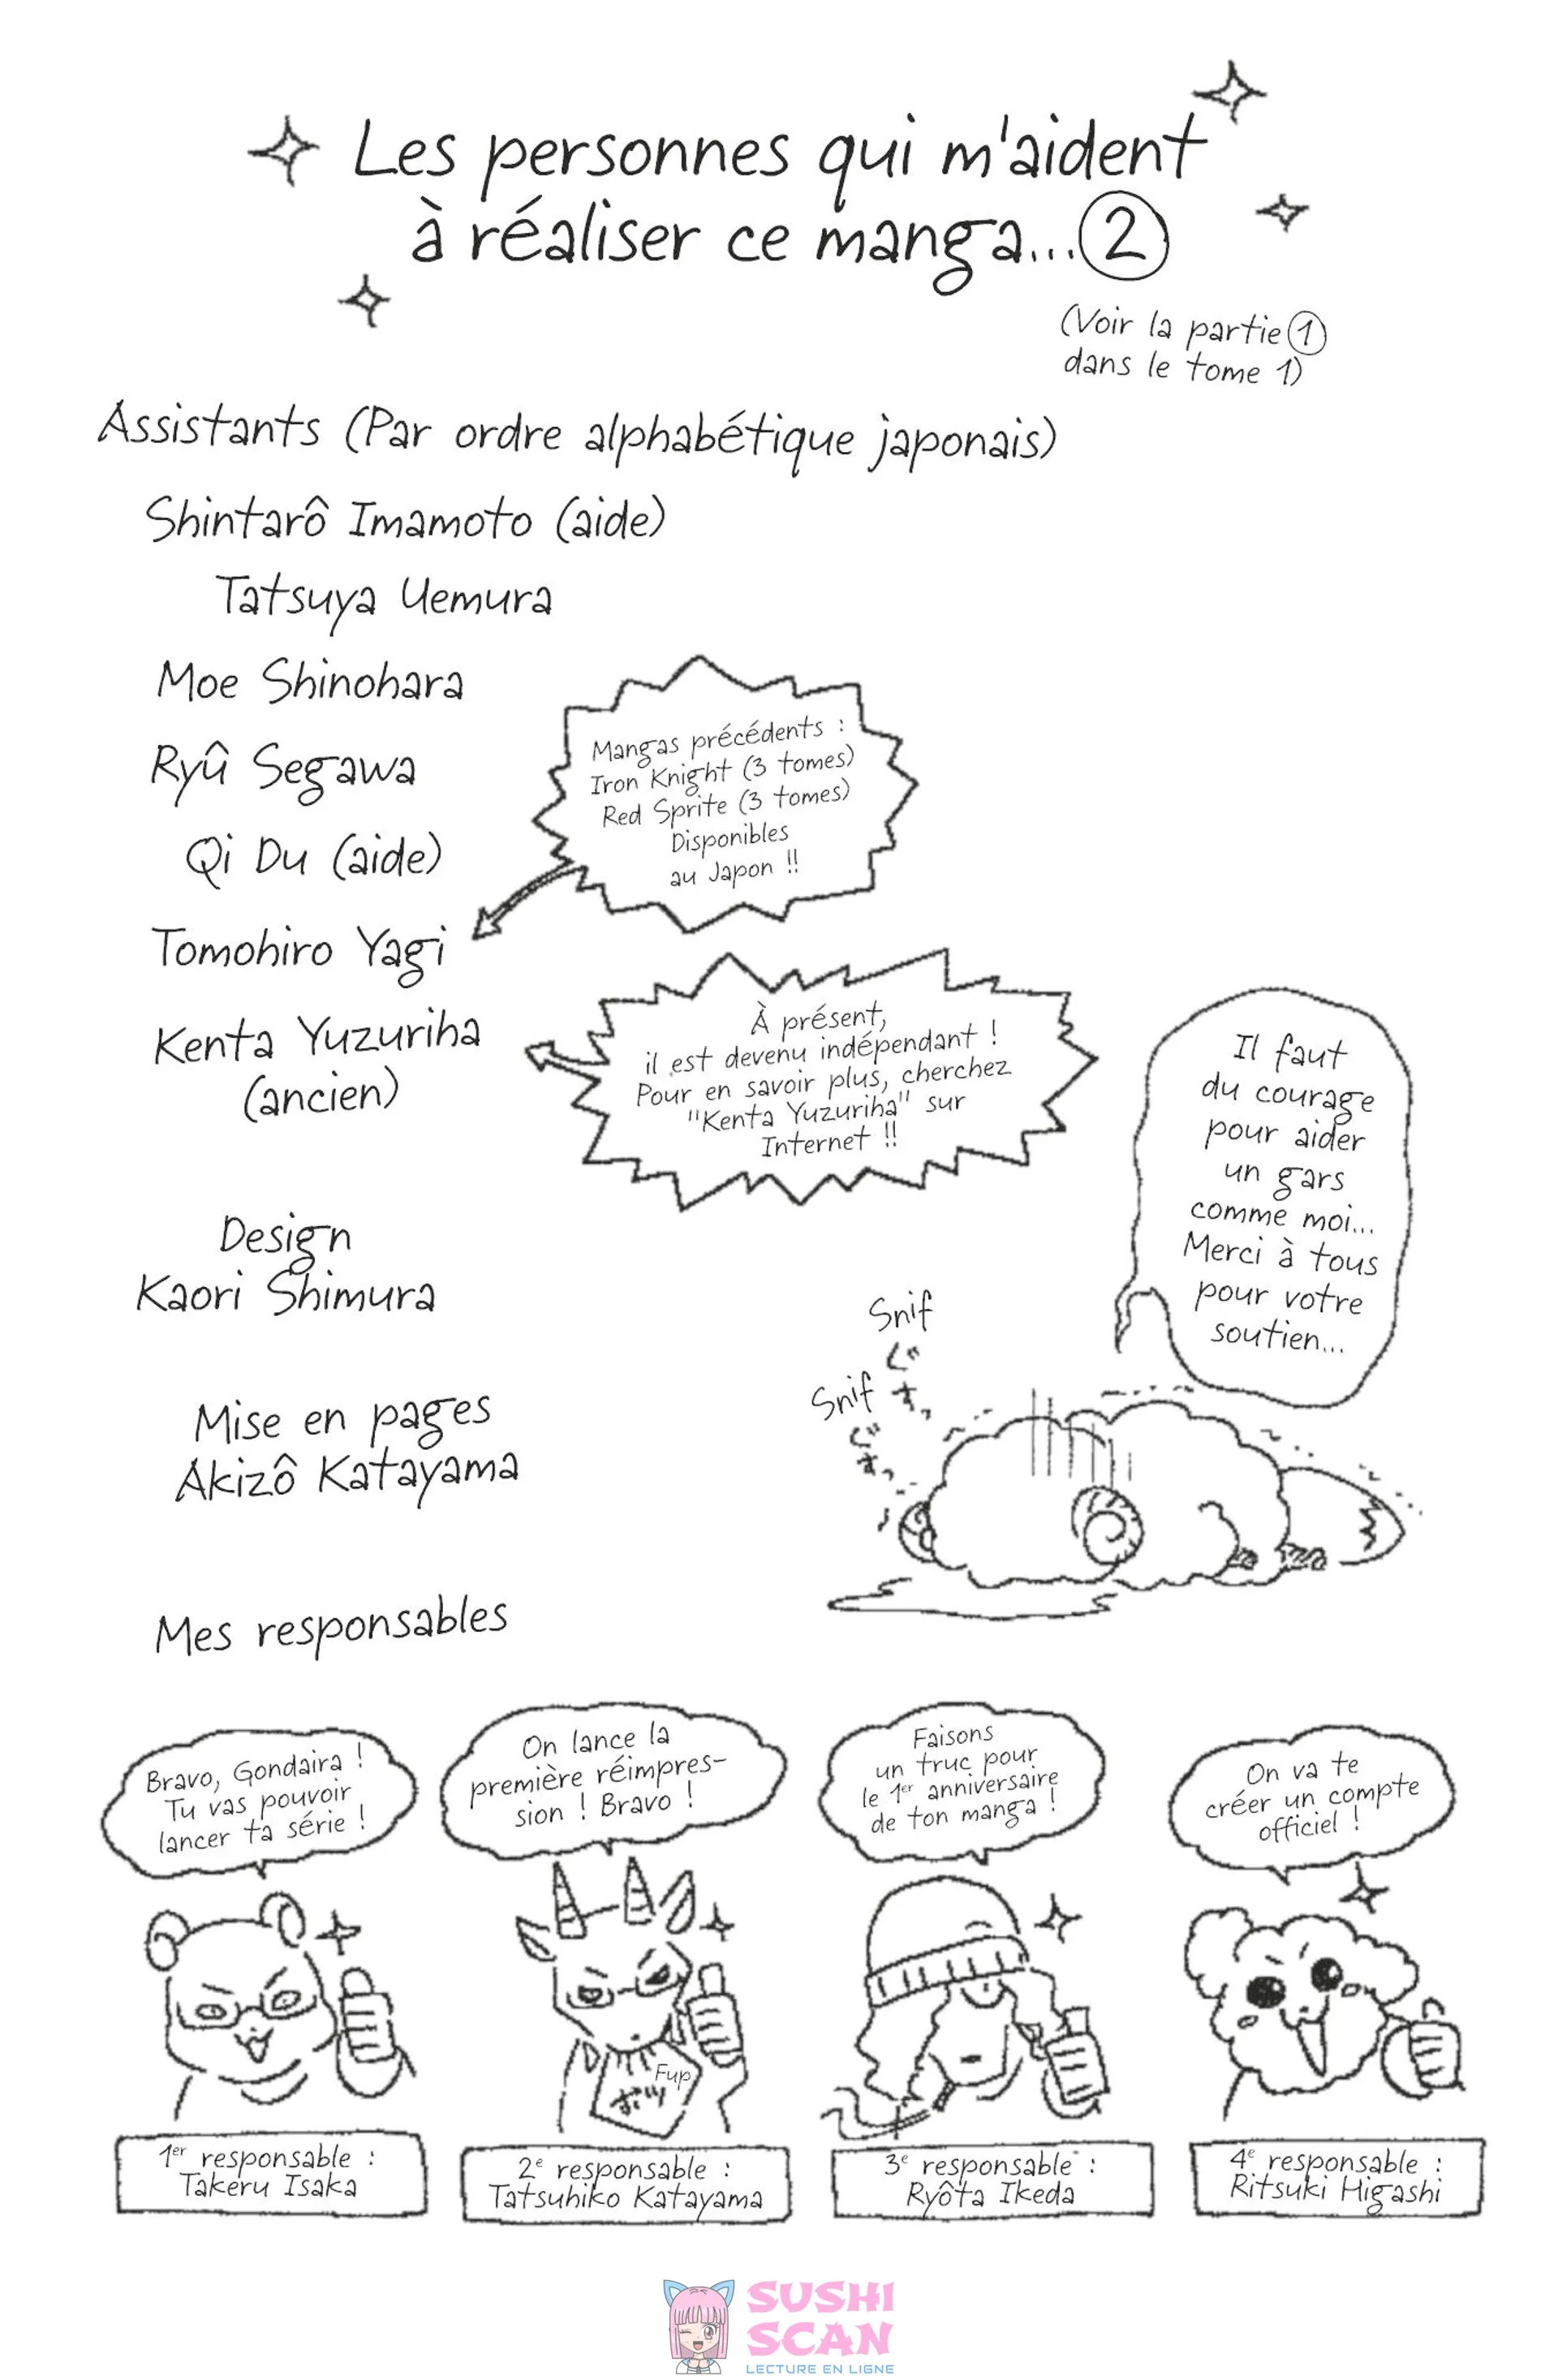 Les personnes qui m'aident
à réaliser ce manga... 2
(Voir la partie 1
dans le tome 1)
Assistants (Par ordre alphabétique japonais)
Shintarô Imamoto (aide)
Tatsuya Uemura
Moe Shinohara
Ryû Segawa
Qi Du (aide)
Tomohiro Yagi
Mangas précédents :
Iron Knight (3 tomes)
Red Sprite (3 tomes)
Disponibles
au Japon !!
Kenta Yuzuriha
(ancien)
À présent,
il est devenu indépendant !
Pour en savoir plus, cherchez
"Kenta Yuzuriha" sur
Internet !!
Il faut
du courage
pour aider
un gars
comme moi...
Merci à tous
pour votre
soutien...
Design
Kaori Shimura
Snif
ぐす
Snif
ぐす
Mise en pages
Akizô Katayama
Mes responsables
Bravo, Gondaira !
Tu vas pouvoir
lancer ta série !
On lance la
première réimpres-
sion ! Bravo !
Faisons
un truc pour
le 1er anniversaire
de ton manga !
On va te
créer un compte
officiel !
Fup
1er responsable :
Takeru Isaka
2e responsable :
Tatsuhiko Katayama
3e responsable :
Ryôta Ikeda
4e responsable :
Ritsuki Higashi
SUSHI
SCAN
LECTURE EN LIGNE